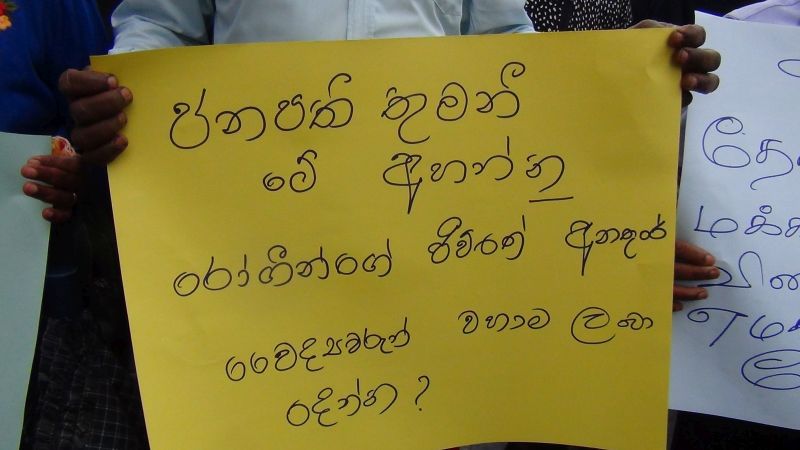 ජනපති තුමනි
මේ අහන්නු
රෝගීන්ගේ ජීවිතේ අනතුරේ
වෛද්‍යවරුන් වහාම ලබා
දෙන්න?
மக்க